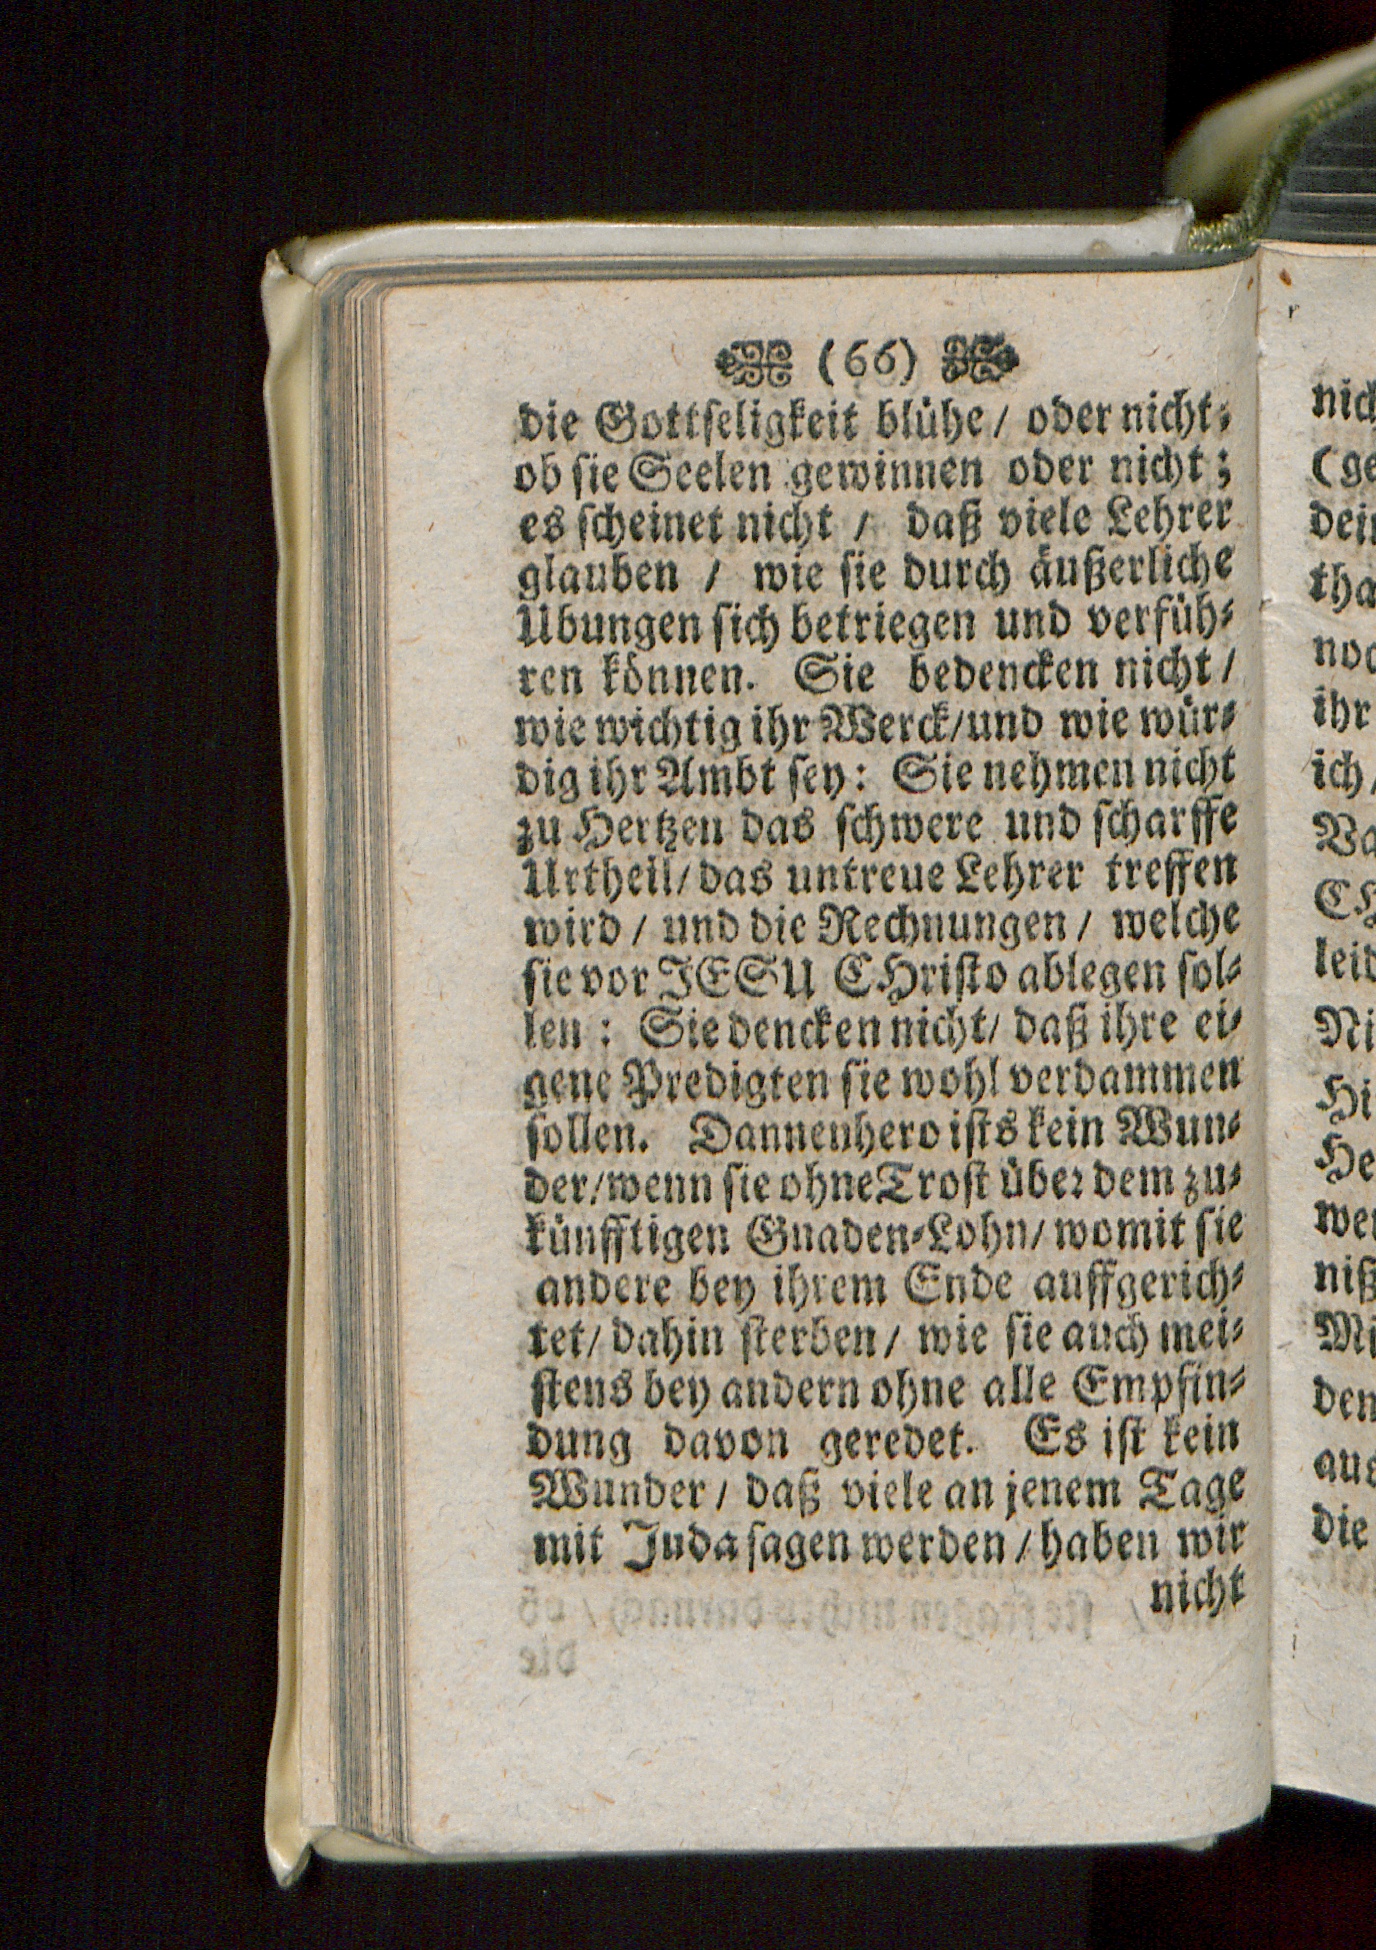 (66)
die Gottſeligkeit blühe / oder nicht;
ob ſie Seelen gewinnen oder nicht;
es ſcheinet nicht / daß viele Lehrer
glauben / wie ſie durch äußerliche
Ubungen ſich betriegen und verfüh-
ren können. Sie bedencken nicht /
wie wichtig ihr Werck / und wie wür-
dig ihr Ambt ſey: Sie nehmen nicht
zu Hertzen das ſchwere und ſcharffe
Urtheil / das untreue Lehrer treffen
wird / und die Rechnungen / welche
ſie vor JESU CHriſto ablegen ſol-
len : Sie dencken nicht / daß ihre ei-
gene Predigten ſie wohl verdammen
ſollen. Dannenhero iſts kein Wun-
der / wenn ſie ohne Troſt über dem zu-
künfftigen Gnaden-Lohn / womit ſie
andere bey ihrem Ende auffgerich-
tet / dahin ſterben / wie ſie auch mei-
ſtens bey andern ohne alle Empfin-
dung davon geredet. Es iſt kein
Wunder / daß viele an jenem Tage
mit Juda ſagen werden / haben wir
nicht